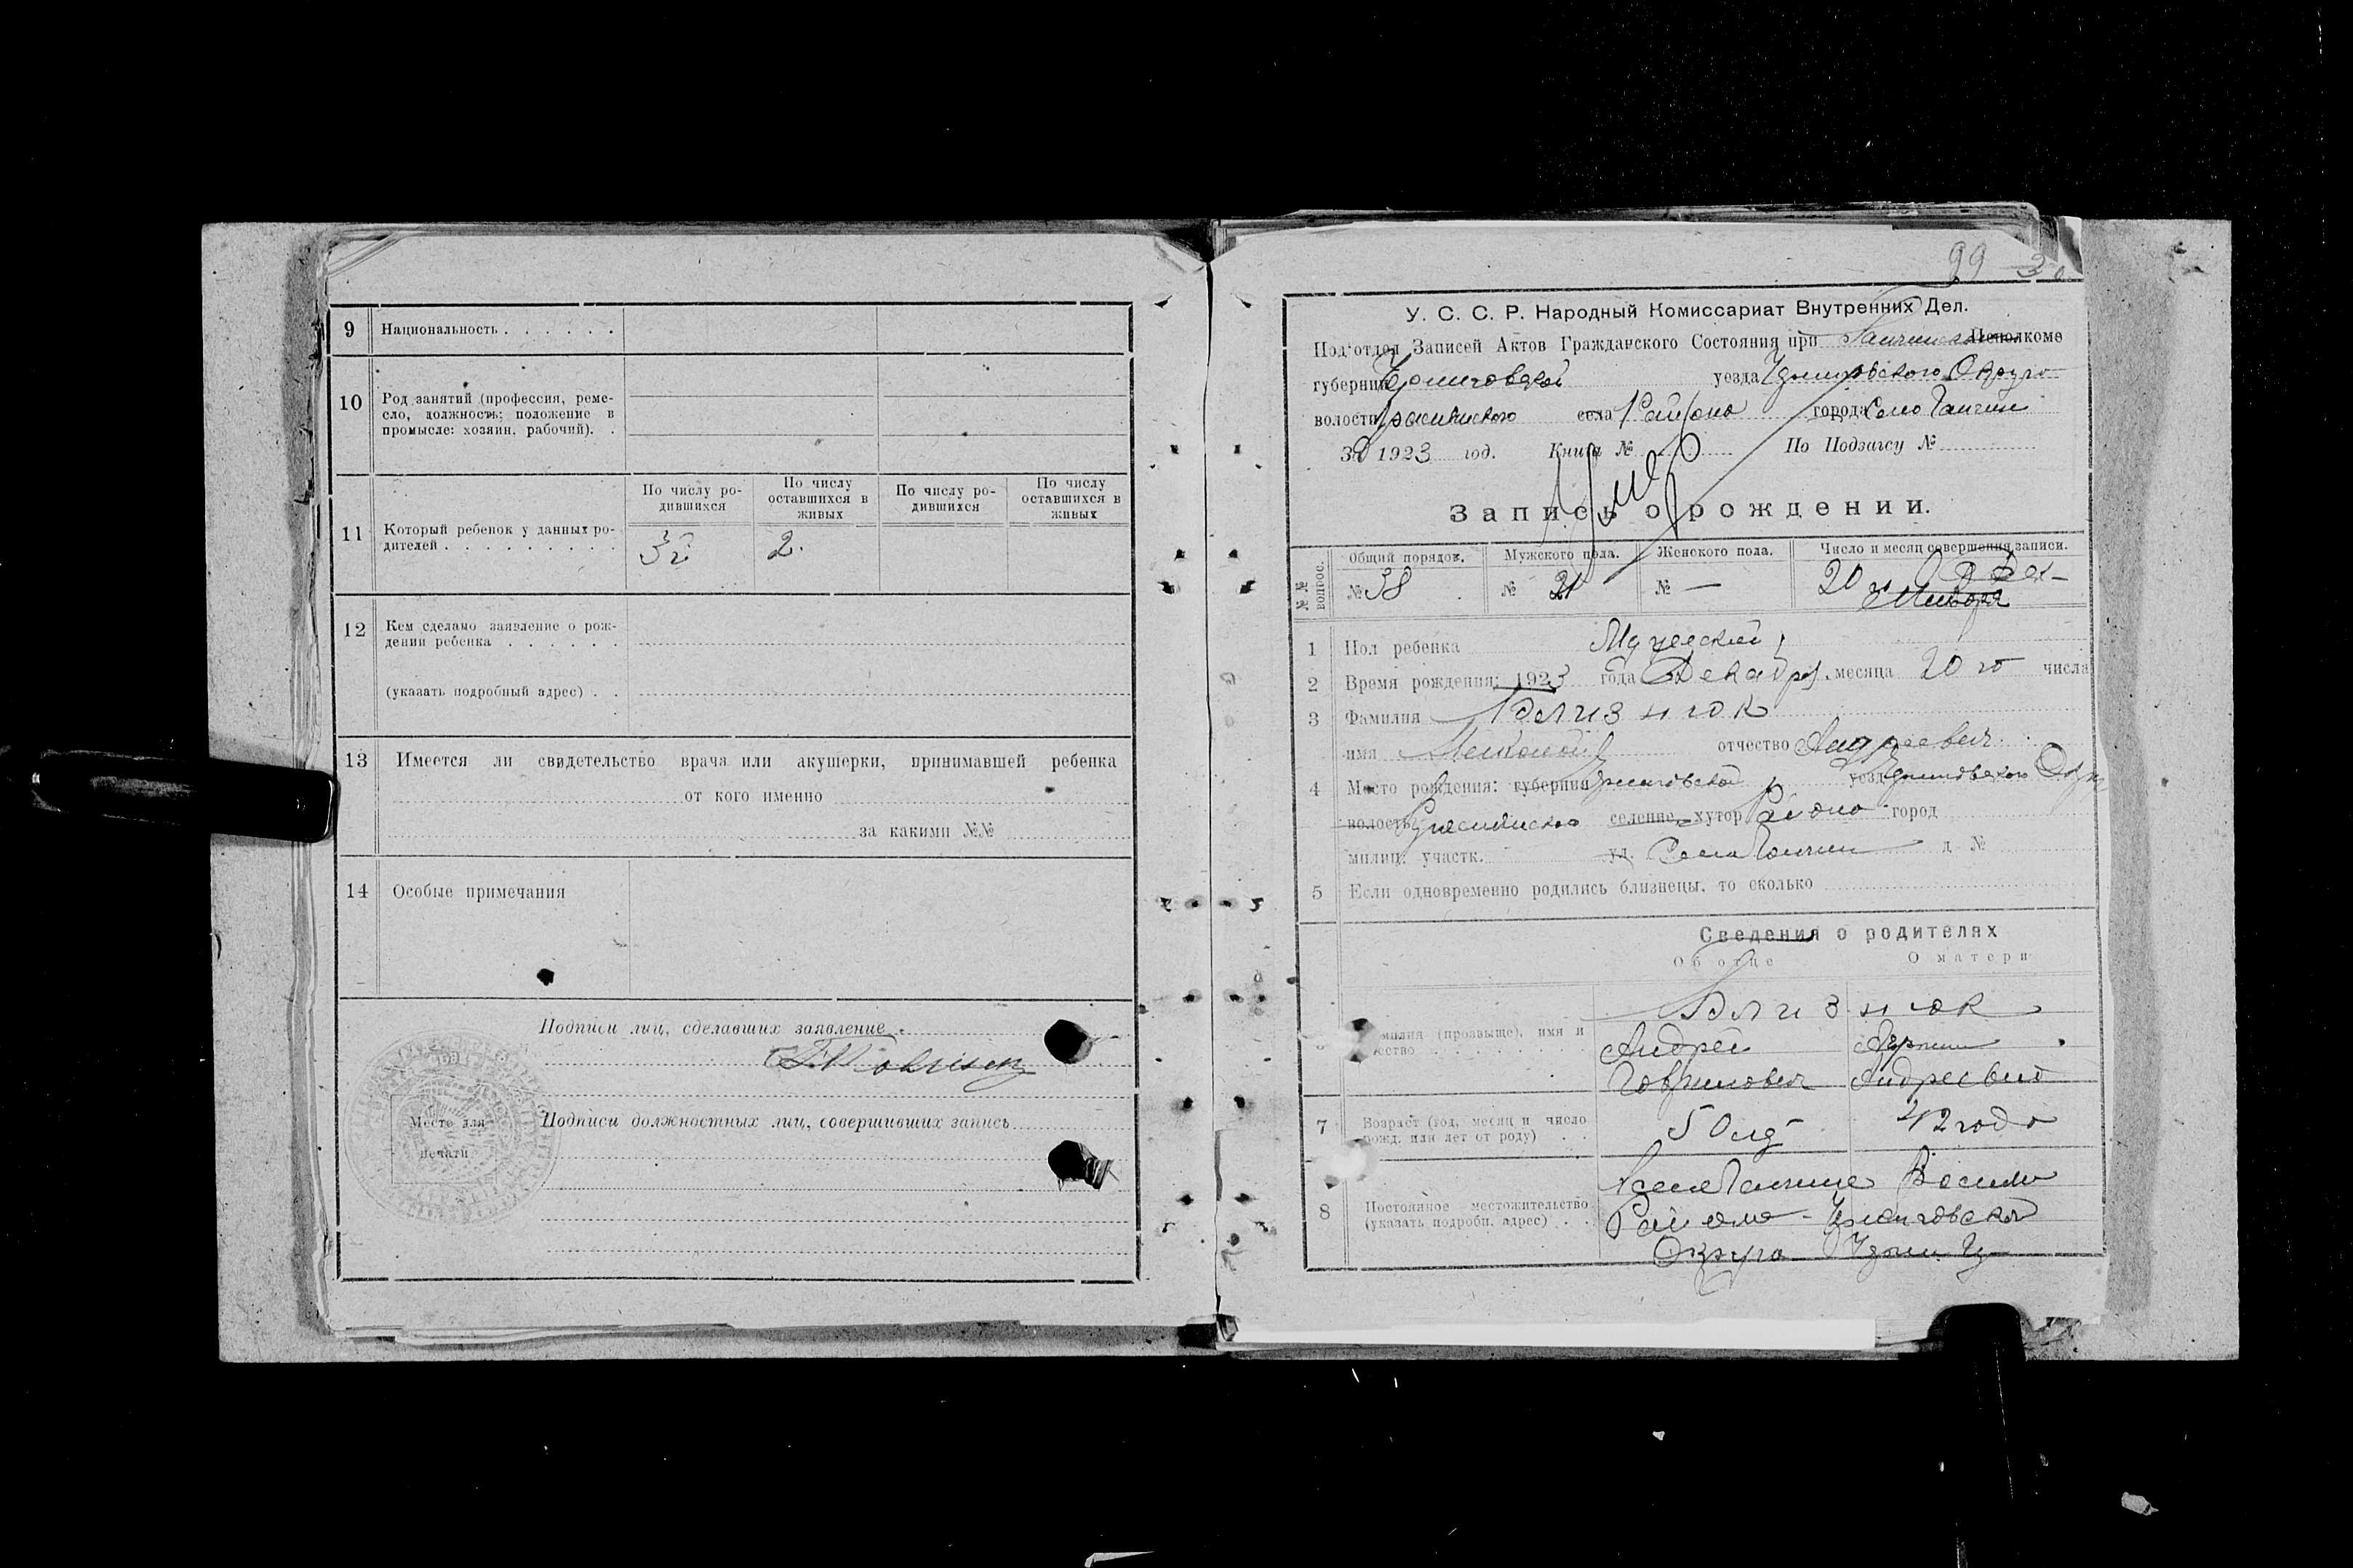 9 Национальность . . . . . .
10 Род занятий (профессия, реме-
сло, должность; положение в
промысле: хозяин, рабочий). .
11 Который ребенок у данных ро-
дителей . . . . . . . . .
По числу ро-
дившихся
По числу
оставшихся в
живых
По числу ро-
дившихся
По числу
оставшихся в
живых
3й 2.
12 Кем сделано заявление о рож-
дении ребенка . . . . . .
(указать подробный адрес) . .
13 Имеется ли свидетельство врача или акушерки, принимавшей ребенка
от кого именно
за какими №№
14 Особые примечания
Подписи лиц, сделавших заявление
Подписи должностных лиц, совершивших запись
Место для
печати
99 30
У. С. С. Р. Народный Комиссариат Внутренних Дел.
Под'отдел Записей Актов Гражданского Состояния при Исполкоме
губернии Черниговской уезда Черниговского Округа
волости села Района города Село
За 1923 год. Книга № По Подзагсу №
Запись о рождении.
№№ вопрос.
Общий порядов. Мужского пола. Женского пола. Число и месяц совершения записи.
№ 38 № 21 № — 20 го Дек-
1 Пол ребенка Мужеский
2 Время рождения: 1923 года Декабря месяца 20 го числа
3 Фамилия Близнюк
имя отчество Андреевич
4 Место рождения: губерния Черниговской уезд Черниговского Окр
волость селение, хутор Район город
милиц. участк. ул. Села д №
5 Если одновременно родились близнецы, то сколько
Сведения о родителях
Об отце О матери
Фамилия (прозвыще), имя и
Близнюк
Андрей
Андреевна
7 Возраст (год, месяц и число
рожд. или лет от роду) . .
50 лет 42 года
8 Постоянное местожительство
(указать подробн. адрес) . .
Района Черниговской
Округа